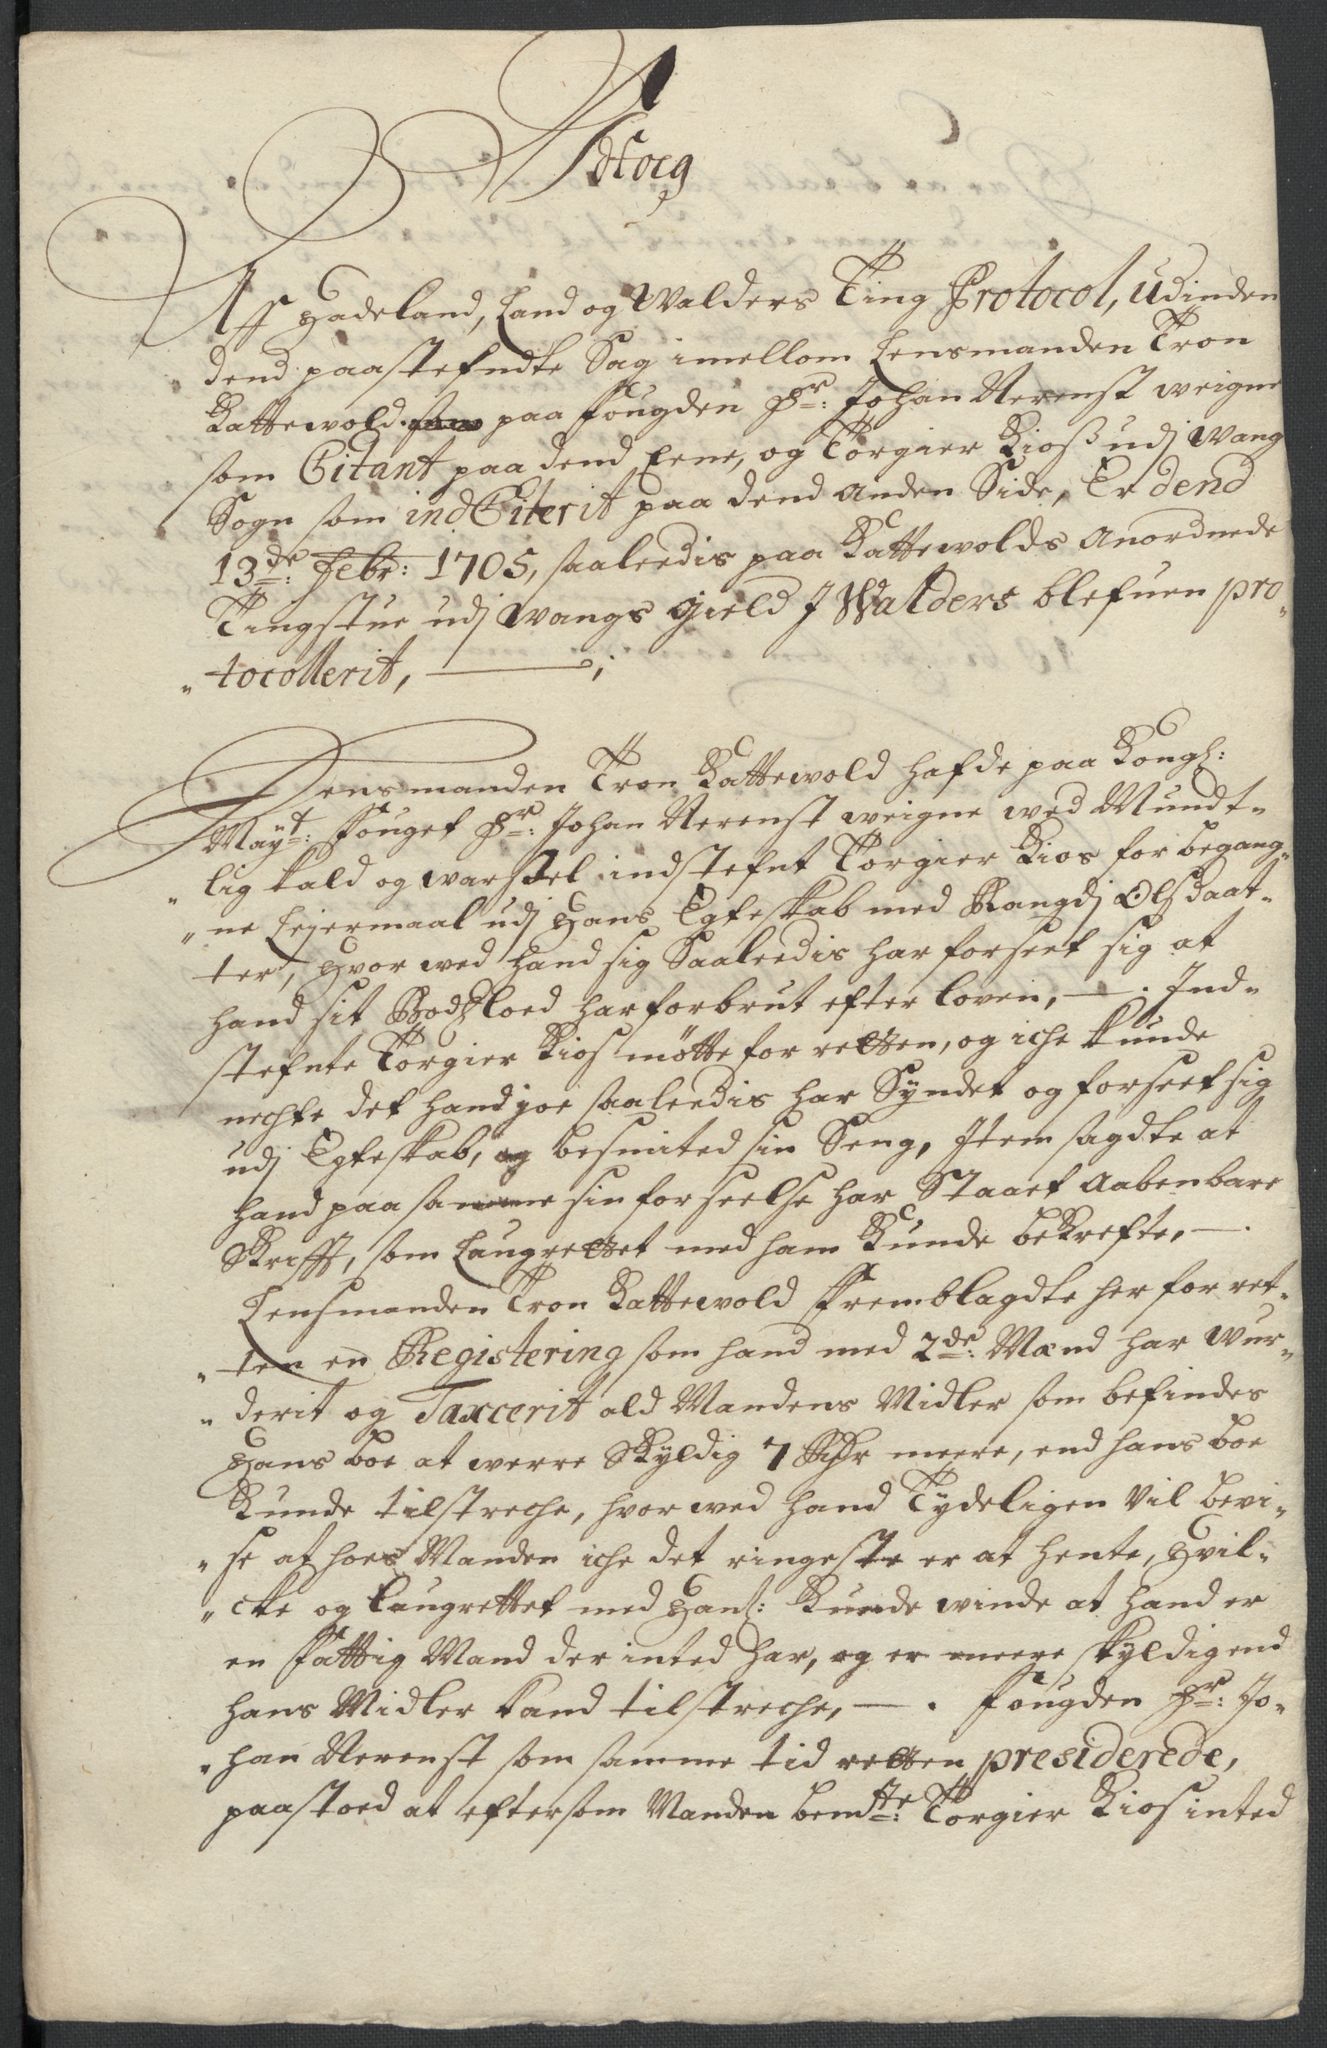 Udtog
Aff Hadeland, Land og Walders Ting Protocol, udinden
dend paastefndte Sag imellom Lensmanden Tron
Kattewold paa fougden Hr: Johan Nerenst weigne
som Citant paa dend Eene, og Torgier Kioß udj wang
Sogn som indCiterit paa dend anden Side, Er dend
13de: Febr: 1705, saaleedis paa Kattewolds anordnede
Tingstue udj wangs gield J Walders blefuen pro„
„tocollerit, —;
Lensmanden Tron Kattewold hafde paa Kongl:
Mayt: fouget Hr: Johan Nerenst weigne wed Mundt„
„lig kald og warsel indstefnt Torgier Kios for begang„
„ne Leyermaal udj hans Egteskab med Rangdj Olsdaat„
ter, hvor wed hand sig Saaleedis har forseet sig at
hand sit Bodsloed har forbrut efter loven, —. Ind„
stefnte Torgier Kios møtte for retten, og iche kunde
nechte det hand joe saaleedis har Syndet og forseet sig
udj Egteskab, og besmited sin Seng, Item sagdte at
hand paa samme sin forseelse har Staaet aabenbare
Skrifft, som Laugrettet med ham kunde bekrefte, —.
Lensmanden Tron Kattewold fremblagdte her for ret„
„ten en Registering som hand med 2de: Mænd har wur„
„derit og Taxcerit ald Mandens Midler som befindes
hans boe at werre skyldig 7 Rdr meere, end hans boe
kunde tilstreche, hvor wed hand Tydeligen vil bevi„
„se at hoes Manden iche det ringeste er at hente, hvil„
„cke og Laugrettet med hans: kunde winde at hand er
en fattig Mand der inted har, og er meere skyldig end
hans Midler kand tilstreche, —. fougden Hr: Jo„
„han Nerenst som samme tid retten presiderede,
paastoed at eftersom Manden bemdte: Torgier Kios inted